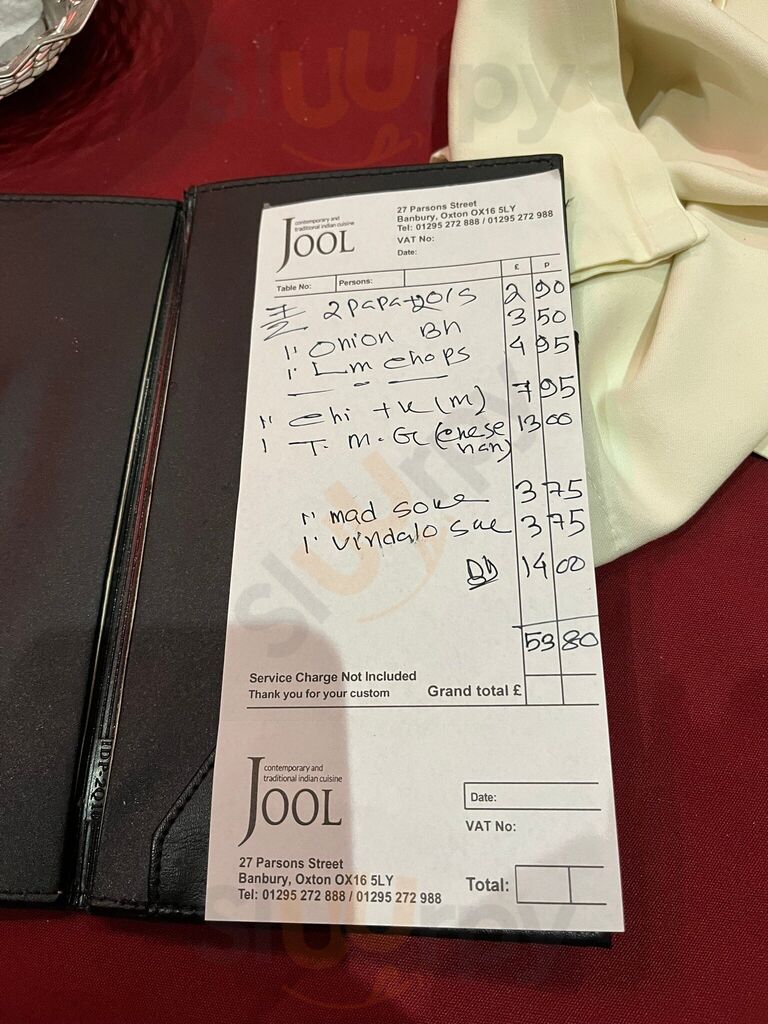 contemporary and
traditional indian cuisine
JOOL
27 Parsons Street
Banbury, Oxton OX16 5LY
Tel: 01295 272 888 / 01295 272 988
VAT No:
Date:
Table No: Persons: £ P
2 papadols 2 90
1" Onion Bh 3 50
1' Lm chops 4 95
1" chi tk (m) 7 95
1 T. M. G (chese nan) 13 00
1" mad souce 3 75
1' vindalo sace 3 75
14 00
53 80
Service Charge Not Included
Thank you for your custom Grand total £
contemporary and
traditional indian cuisine
JOOL
27 Parsons Street
Banbury, Oxton OX16 5LY
Tel: 01295 272 888 / 01295 272 988
Date:
VAT No:
Total:
sluurpy